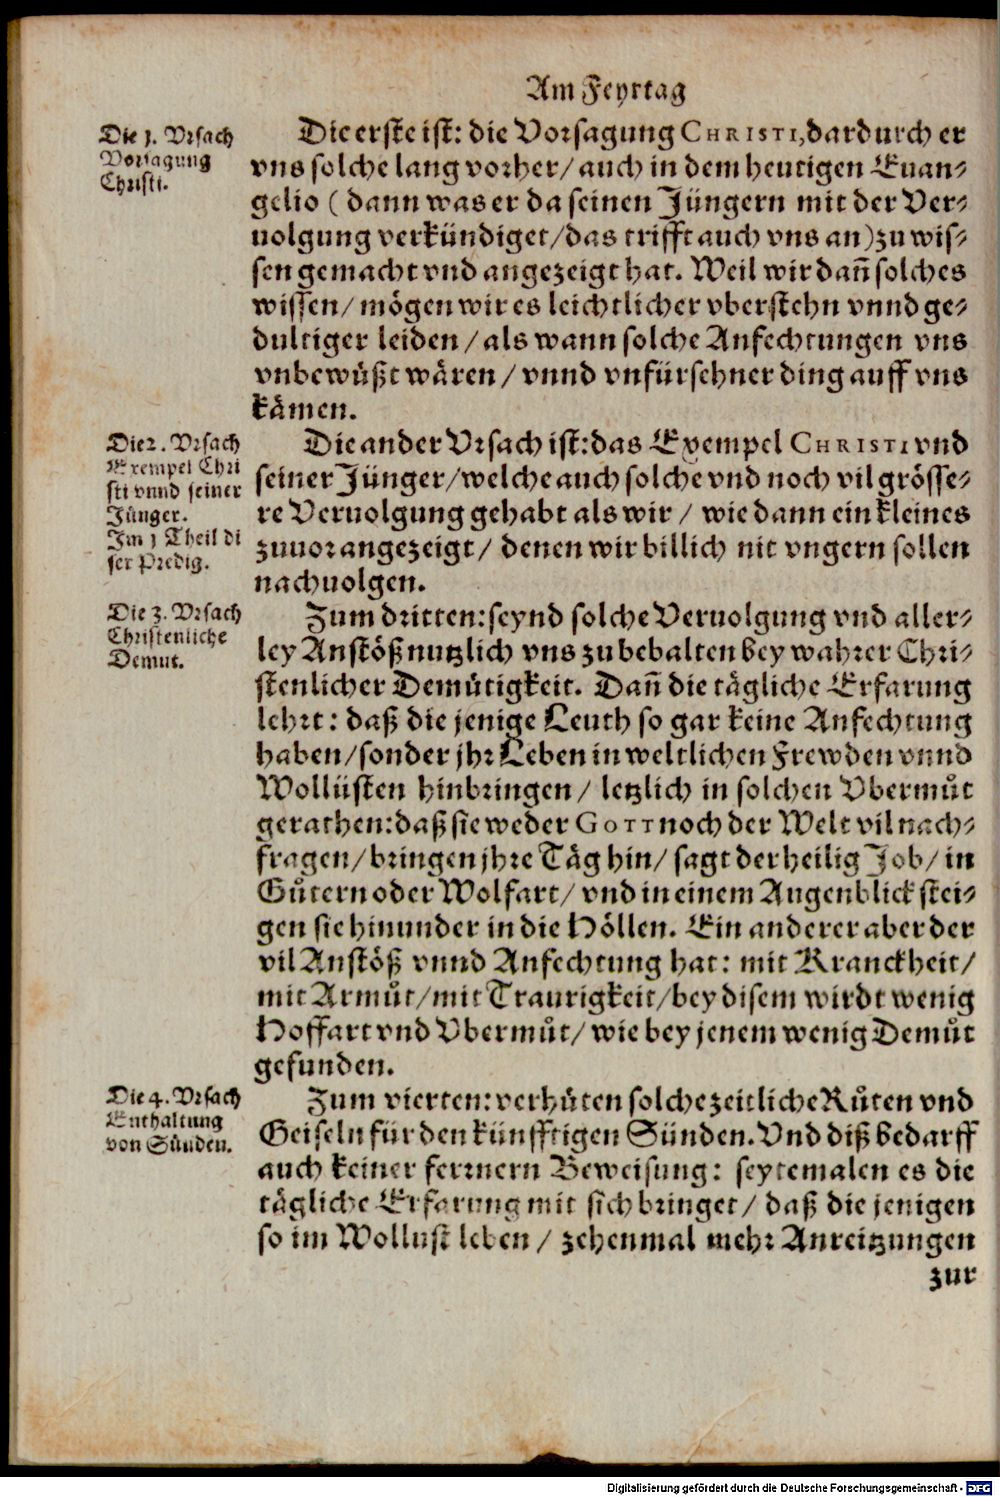 Am Feyrtag
Die 1. Vrsach
Vorsagung
Christi.
Die erste ist: die Vorsagung CHRISTI, dardurch er
vns solche lang vorher/ auch in dem heutigen Euan-
gelio ( dann was er da seinen Jüngern mit der Ver-
uolgung verkündiget/ das trifft auch vns an) zu wis-
sen gemacht vnd angezeigt hat. Weil wir dañ solches
wissen/ mögen wir es leichtlicher vberstehn vnnd ge-
dultiger leiden/ als wann solche Anfechtungen vns
vnbewüßt wären/ vnnd vnfürsehner ding auff vns
kämen.
Die 2. Vrsach
Exempel Chri
sti vnnd seiner
Jünger.
Im 1 Theil di
ser Predig.
Die ander Vrsach ist: das Exempel CHRISTI vnd
seiner Jünger/ welche auch solche vnd noch vil grösse-
re Veruolgung gehabt als wir/ wie dann ein kleines
zuuor angezeigt/ denen wir billich nit vngern sollen
nachuolgen.
Die 3. Vrsach
Christenliche
Demut.
Zum dritten: seynd solche Veruolgung vnd aller-
ley Anstöß nutzlich vns zubehalten bey wahrer Chri-
stenlicher Demütigkeit. Dañ die tägliche Erfarung
lehrt: daß die jenige Leuth so gar keine Anfechtung
haben/ sonder jhr Leben in weltlichen Frewden vnnd
Wollüsten hinbringen/ letzlich in solchen Vbermůt
gerathen: daß sie weder GOTT noch der Welt vil nach-
fragen/ bringen jhre Täg hin/ sagt der heilig Job/ in
Gůtern oder Wolfart/ vnd in einem Augenblick stei-
gen sie hinunder in die Höllen. Ein anderer aber der
vil Anstöß vnnd Anfechtung hat: mit Kranckheit/
mit Armůt/ mit Traurigkeit/ bey disem wirdt wenig
Hoffart vnd Vbermůt/ wie bey jenem wenig Demůt
gefunden.
Die 4. Vrsach
Enthaltung
von Sünden.
Zum vierten: verhůten solche zeitliche Růten vnd
Geiseln für den künfftigen Sünden. Vnd diß bedarff
auch keiner ferrnern Beweisung: seytemalen es die
tägliche Erfarung mit sich bringet/ daß die jenigen
so im Wollust leben/ zehenmal mehr Anreitzungen
zur
Digitalisierung gefördert durch die Deutsche Forschungsgemeinschaft - DFG